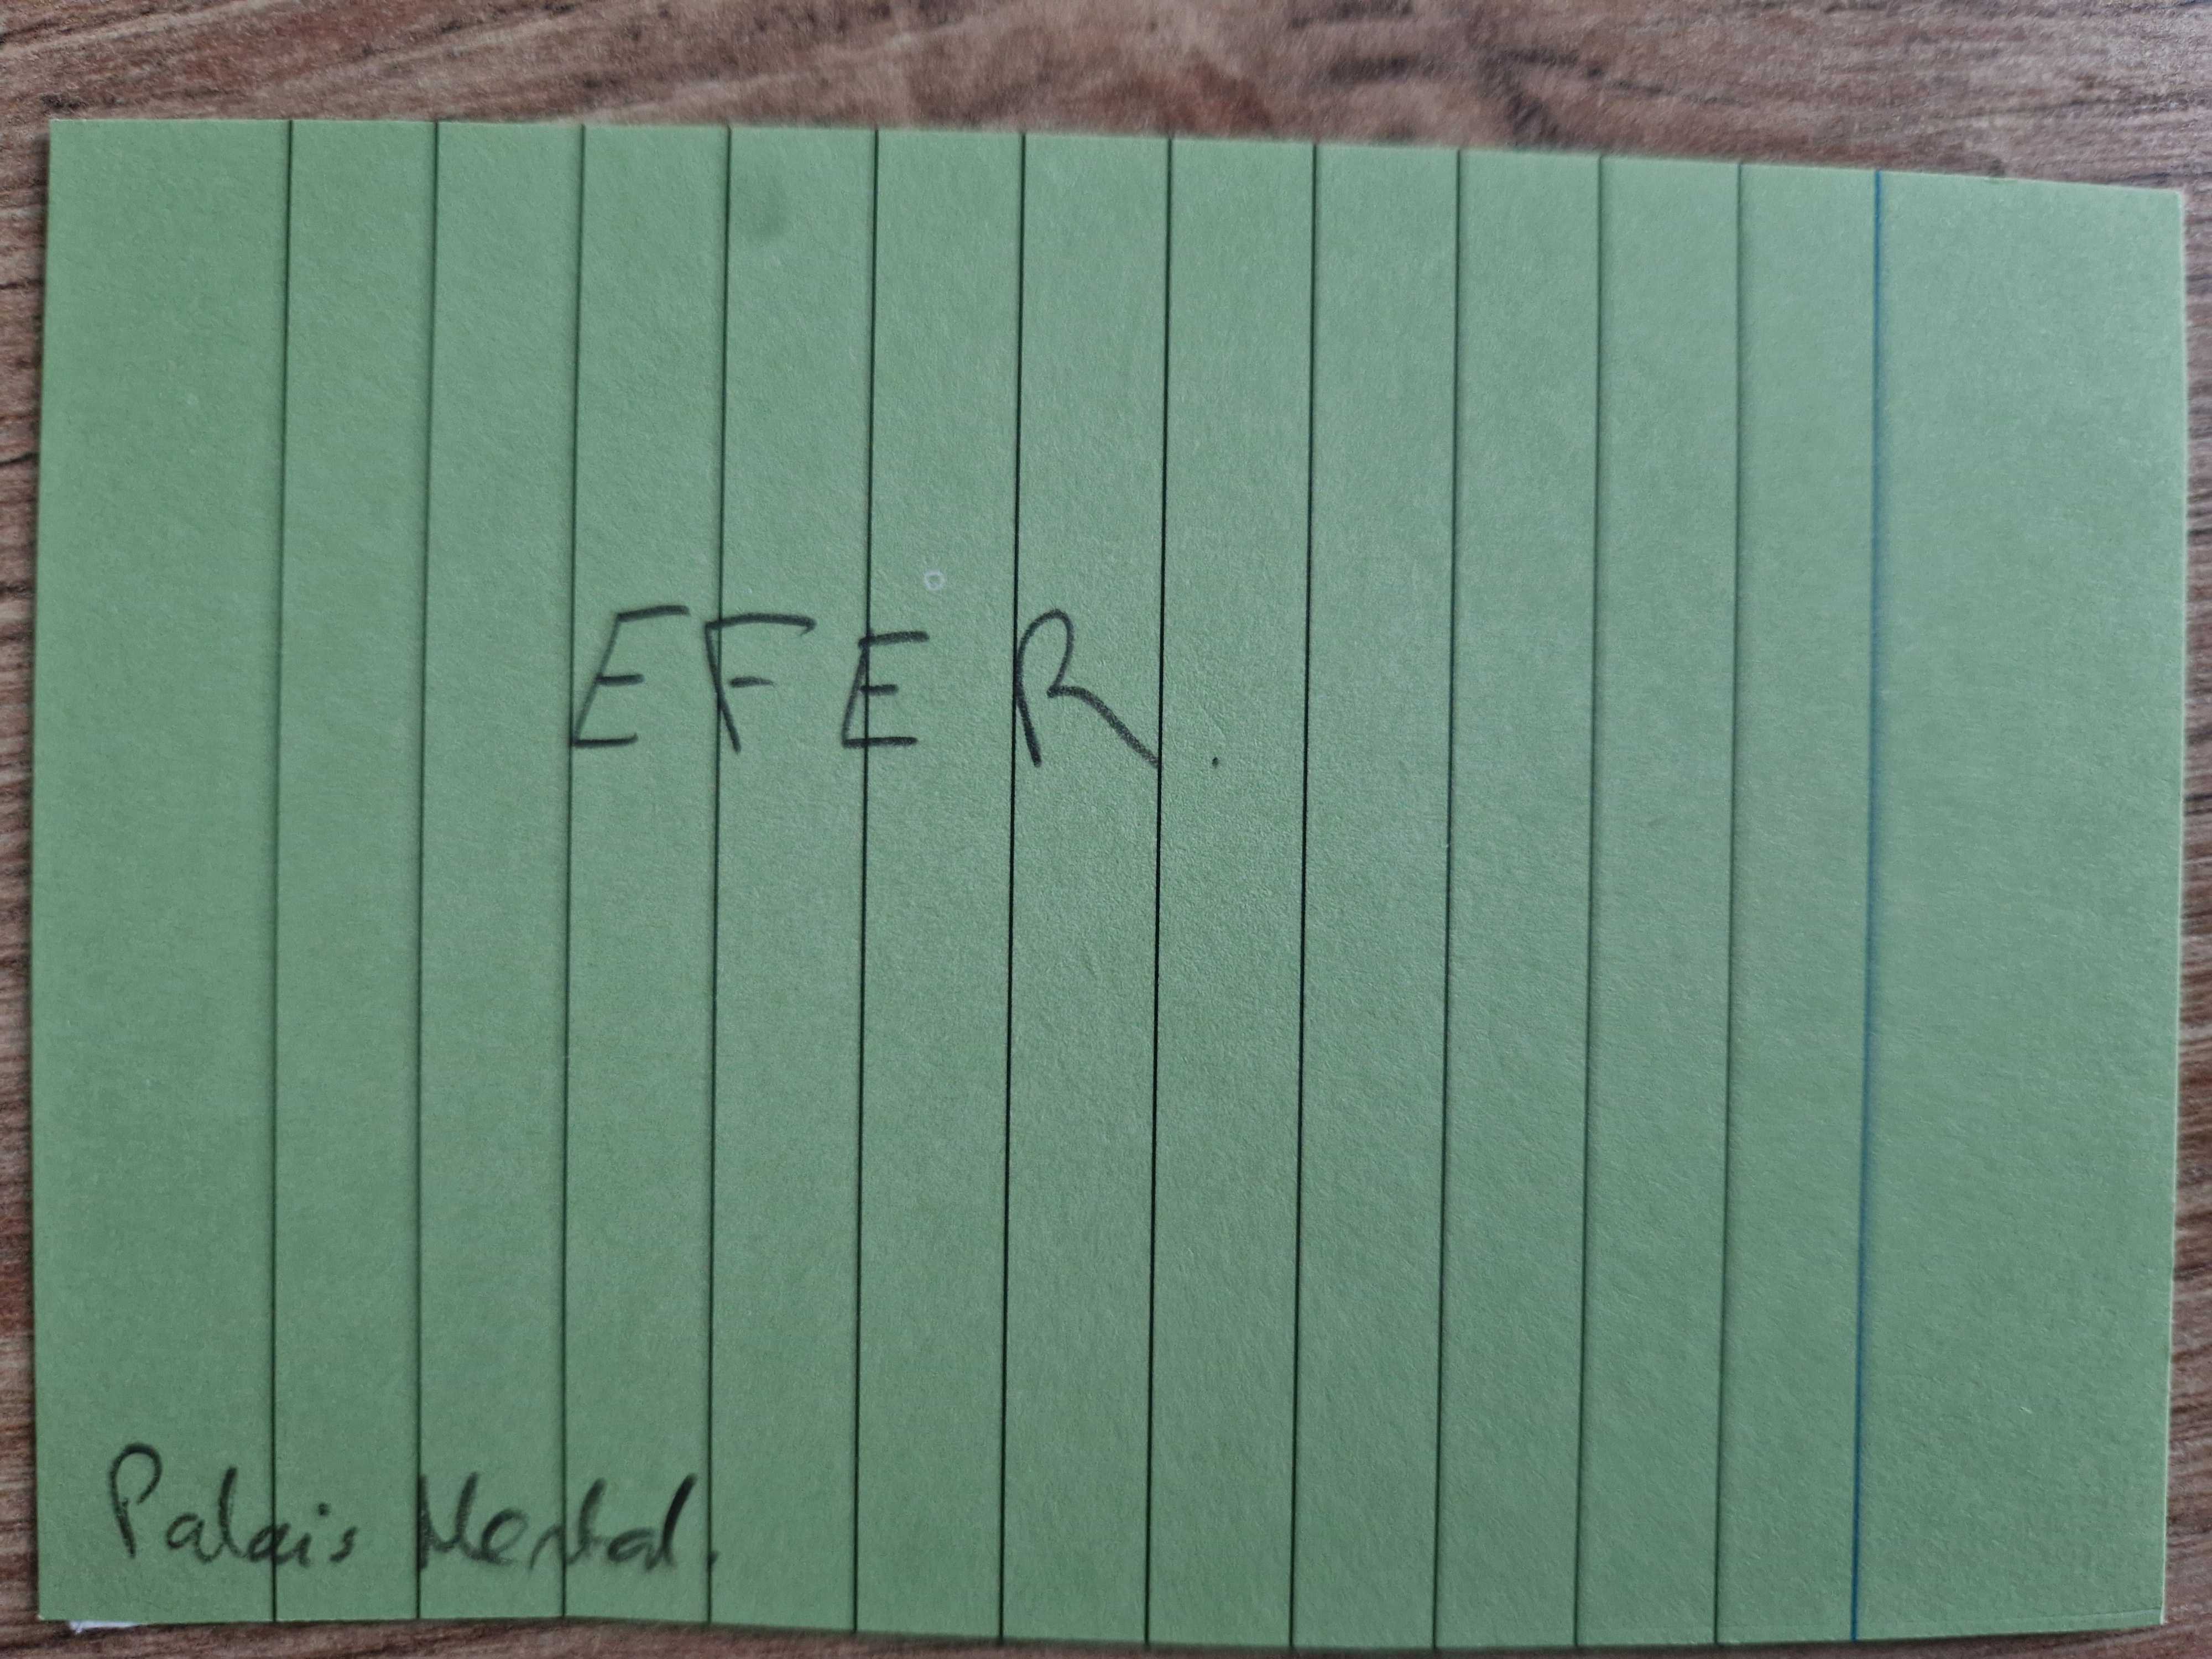 EFER.
Palais Mental.